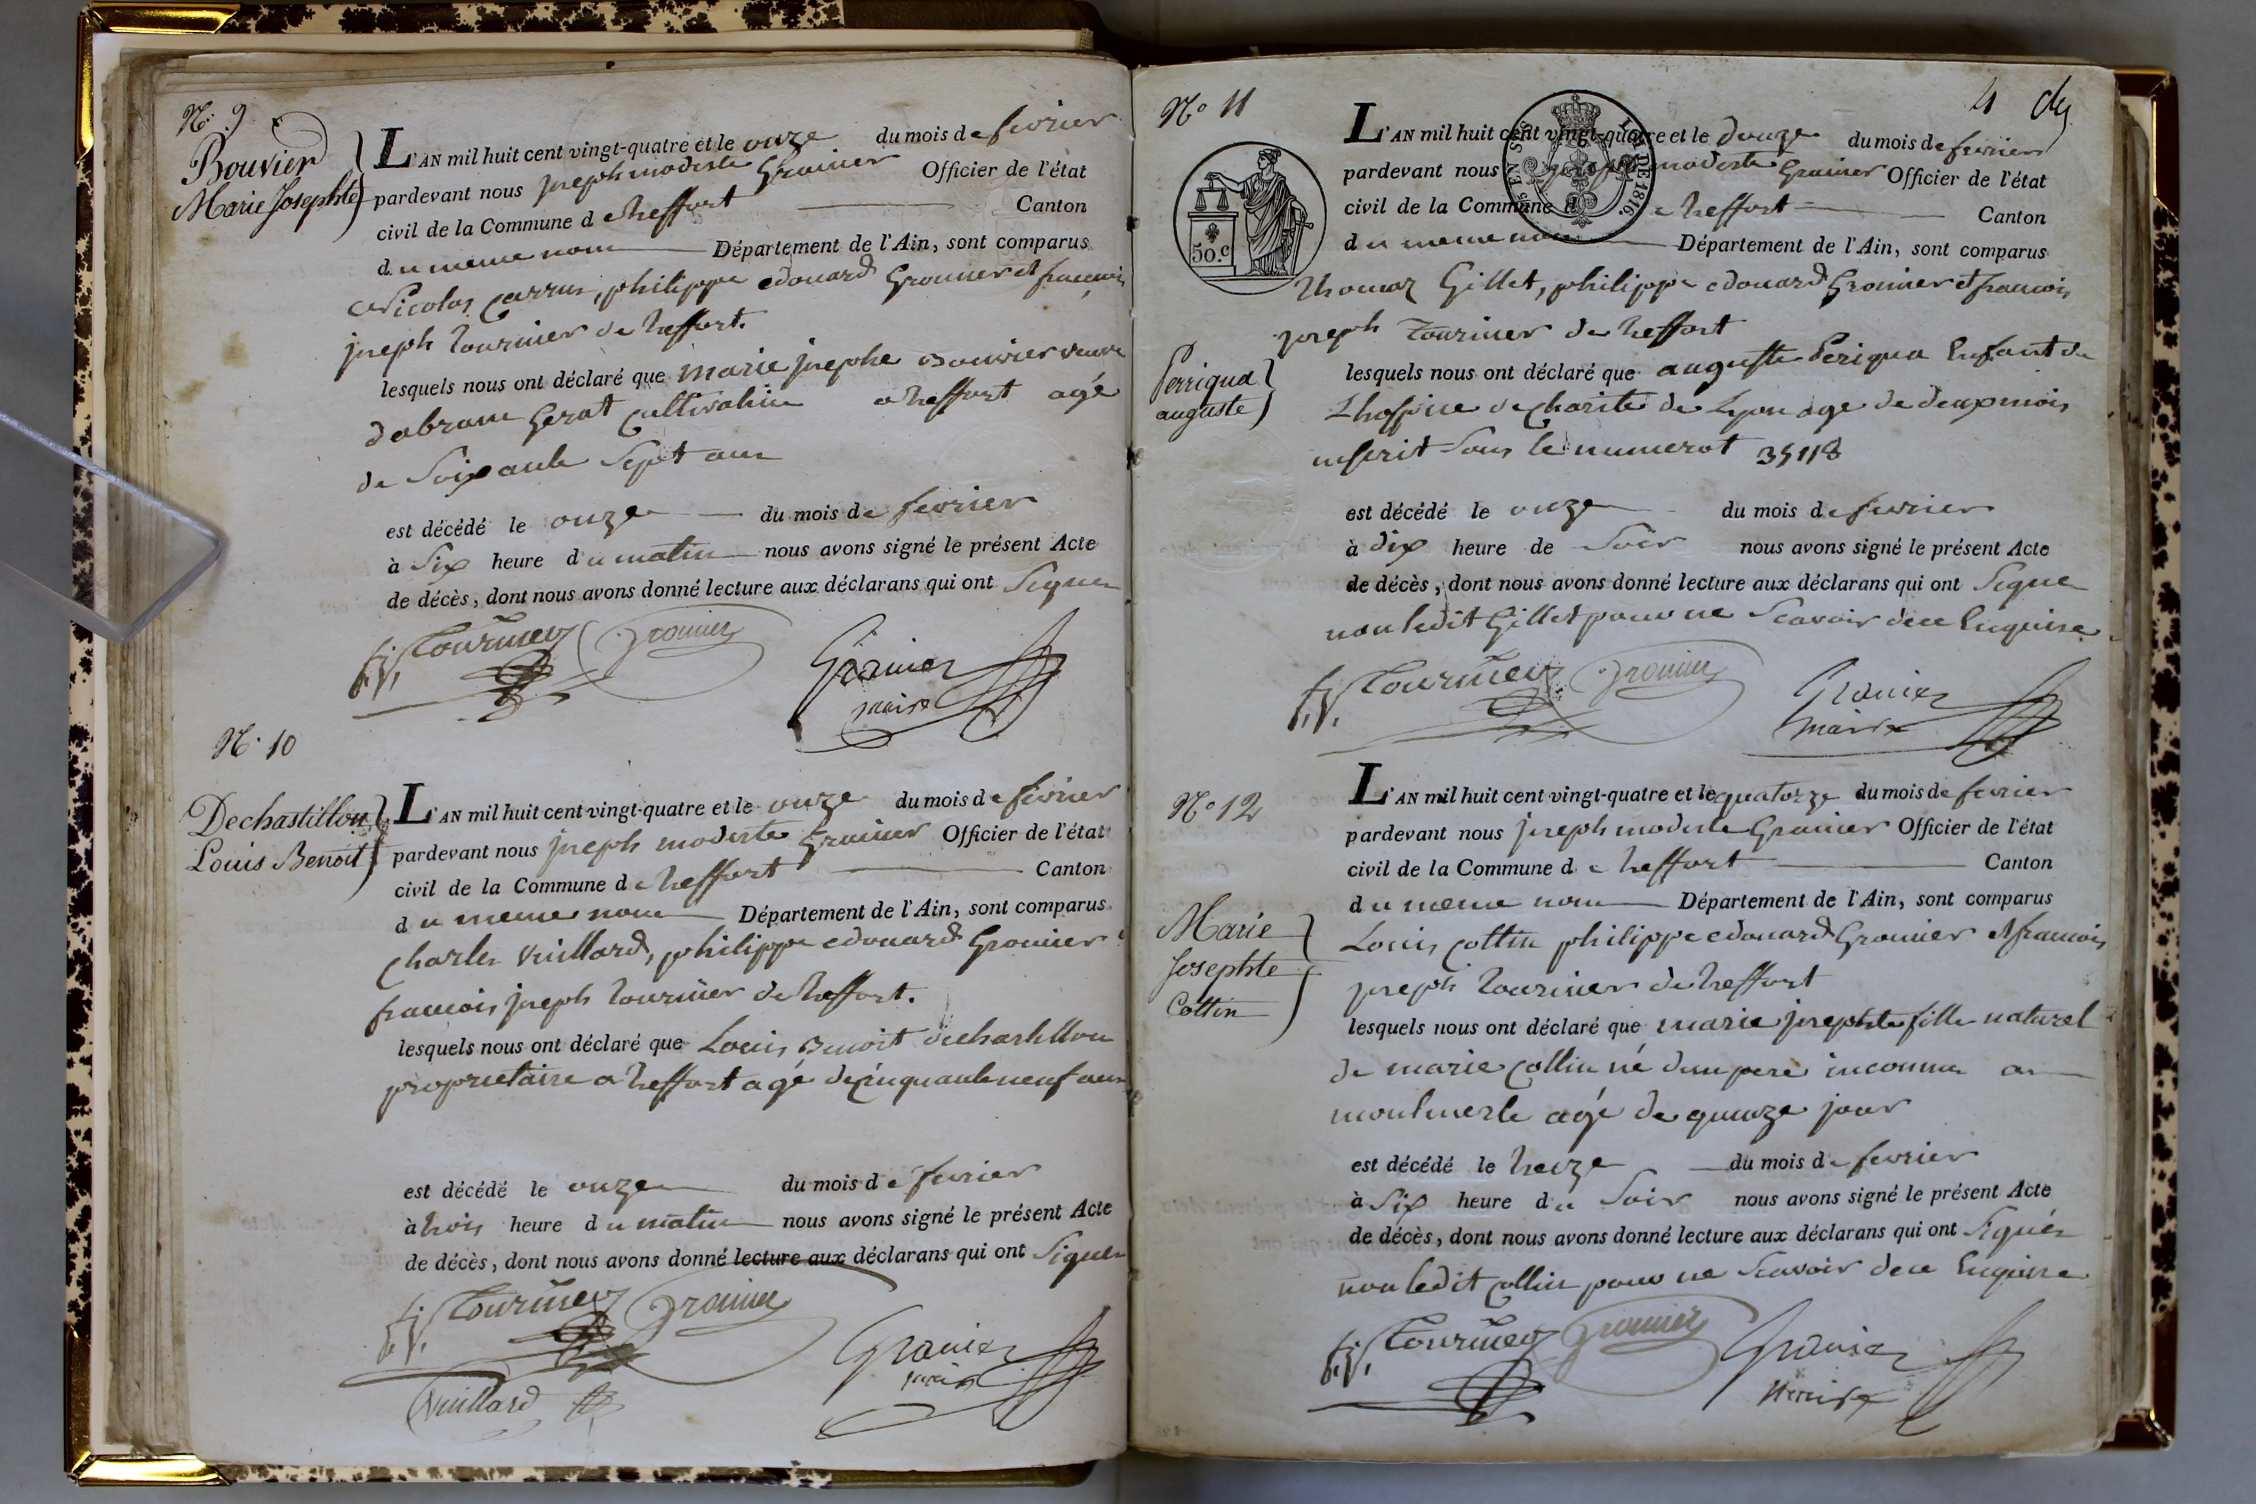 N° 9
Bouvier
Marie Josephte
L'AN mil huit cent vingt-quatre et le onze du mois de fevrier
pardevant nous joseph modeste Granier Officier de l'état
civil de la Commune de treffort Canton
du meme nom Département de l'Ain, sont comparus
Nicolas, philippe edouard Gromier et francois
joseph tournier de treffort.
lesquels nous ont déclaré que marie josephe Bouvier veuve
dabram Gerat cultivatrice a treffort agé
de Soixante Sept ans
est décédé le onze du mois de fevrier
à Six heure du matin nous avons signé le présent Acte
de décès, dont nous avons donné lecture aux déclarans qui ont Signer
fj. Tournier Gromier Granier
maire
N° 10
Dechastillon
Louis Benoit
L'AN mil huit cent vingt-quatre et le onze du mois de fevrier
pardevant nous joseph modeste Granier Officier de l'état
civil de la Commune de treffort Canton
du meme nom Département de l'Ain, sont comparus
Charles Vuillard, philippe edouard Gromier
francois joseph tournier de treffort.
lesquels nous ont déclaré que Louis Benoit dechastillon
proprietaire a treffort agé de cinquante neuf ans
est décédé le onze du mois de fevrier
à trois heure du matin nous avons signé le présent Acte
de décès, dont nous avons donné lecture aux déclarans qui ont Signer
fj. Tournier Gromier
Granier
maire
Vuillard
4
N° 11
LOI DE 1816.
50.c
L'AN mil huit cent vingt-quatre et le douze du mois de fevrier
pardevant nous joseph modeste Granier Officier de l'état
civil de la Commune de treffort Canton
du meme nom Département de l'Ain, sont comparus
Thomas Gillet, philippe edouard Gromier et francois
joseph Tournier de treffort
Perriqua
auguste
lesquels nous ont déclaré que auguste Periqua Enfant de
Lhospice de charité de Lyon age de deux mois
inscrit sous le numerot 35118
est décédé le onze du mois de fevrier
à dix heure de Soir nous avons signé le présent Acte
de décès, dont nous avons donné lecture aux déclarans qui ont Signe
non ledit Gillet pour ne Scavoir dece Enquise
fj. Tournier Gromier Granier
maire
N° 12
L'AN mil huit cent vingt-quatre et le quatorze du mois de fevrier
pardevant nous joseph modeste Granier Officier de l'état
civil de la Commune de treffort Canton
du meme nom Département de l'Ain, sont comparus
Marie
Josephte
Cottin
Louis Cottin philippe edouard Gromier et francois
joseph tournier de treffort
lesquels nous ont déclaré que marie josephte fille naturel
de marie Cottin né dun pere inconnu a
montmerle agé de quinze jour
est décédé le treize du mois de fevrier
à Six heure du Soir nous avons signé le présent Acte
de décès, dont nous avons donné lecture aux déclarans qui ont Signés
non ledit Cottin pour ne Scavoir dece Enquise
fj. Tournier Gromier Granier
maire